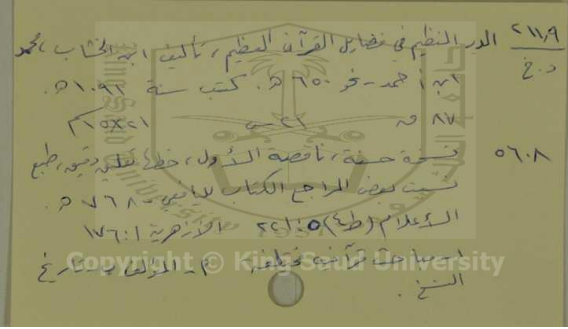 ٢١١,٩ الدر النظيم في فضائل القرآن العظيم، تأليف ابن الخشاب، محمد
د.خ ابن أحمد - نحو ٦٥٠ هـ. كتبت سنة ١٠٩٢ هـ.
٨٧ ق ٢٢ س ٢١×١٥ سم
٥٦٠٨ نسخة حسنة، ناقصة الأول، خطها تعليق دقيق، طبع
نسبت بعض المراجع الكتاب لليافعي - ٧٦٨ هـ.
الأعلام (ط٤) ٥: الأزهرية ١: ١٧٦
١- مباحث قرآنية مختلفة أ- المؤلف ب- تاريخ
النسخ.
Copyright © King Saud University